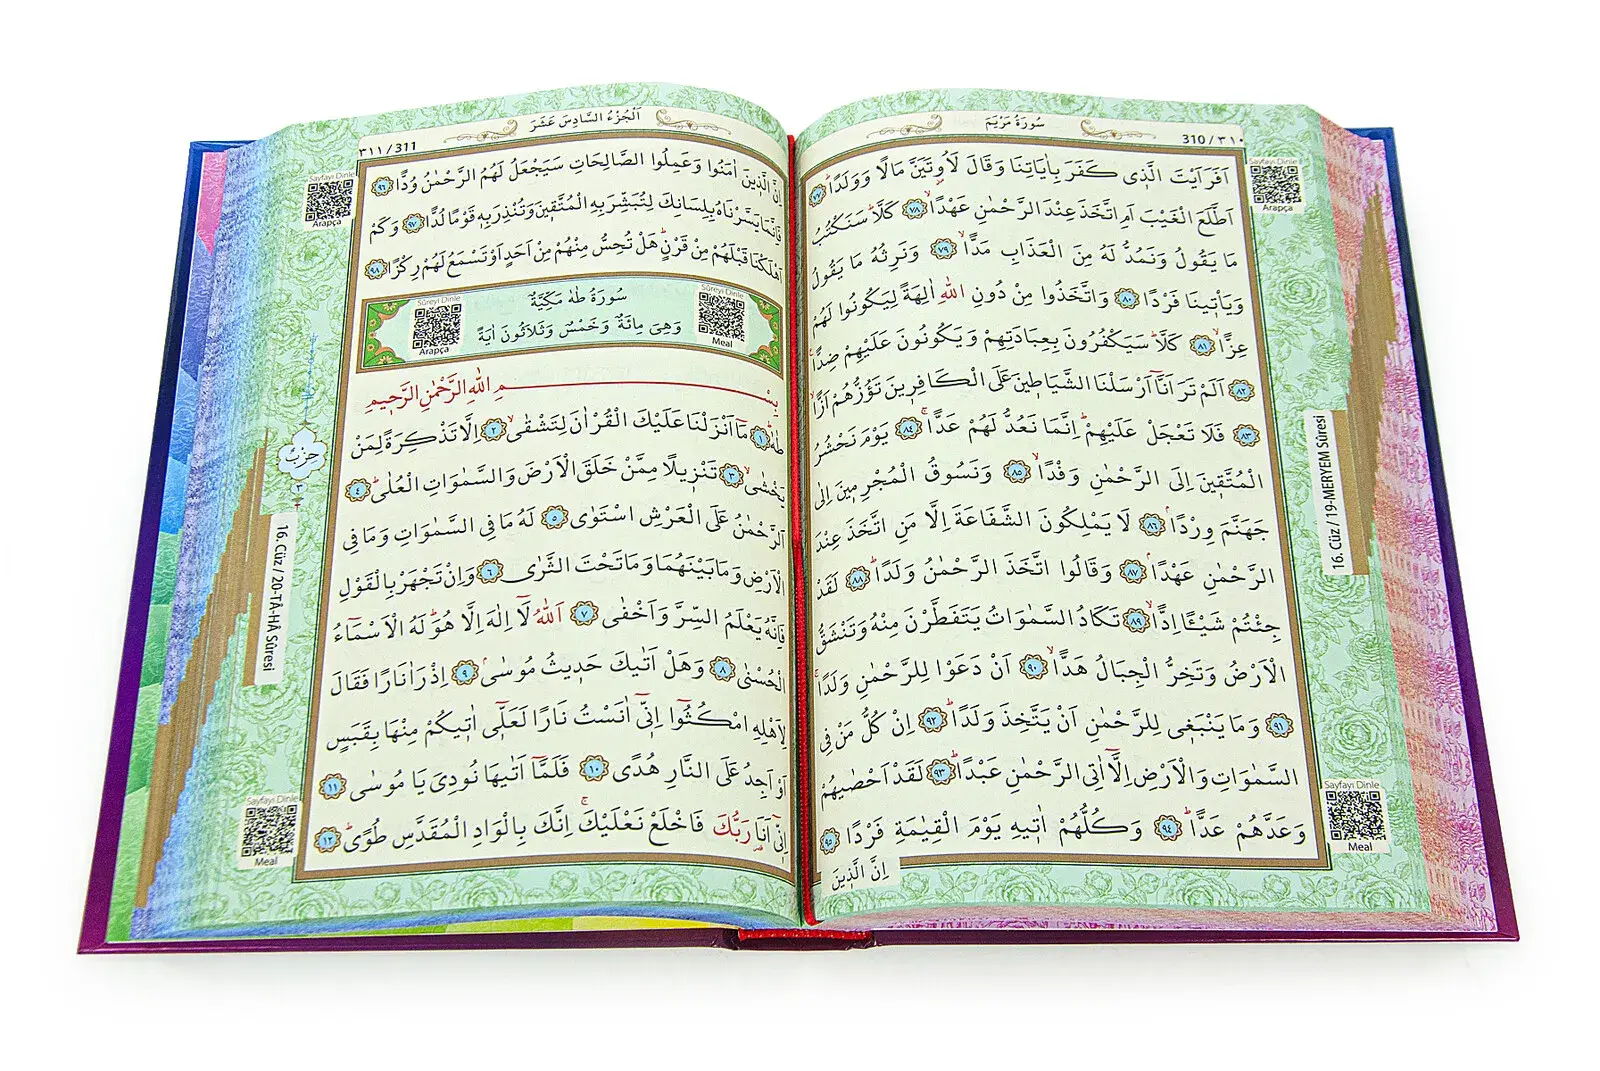 سُورَةُ مَرْيَمَ
310 / ٣١٠
Sayfayı Dinle
Arapça
اَفَرَاَيْتَ الَّذٖى كَفَرَ بِاٰيَاتِنَا وَقَالَ لَاُوتَيَنَّ مَالًا وَوَلَدًاؕ ﴿٧٧﴾
اَطَّلَعَ الْغَيْبَ اَمِ اتَّخَذَ عِنْدَ الرَّحْمٰنِ عَهْدًاۙ ﴿٧٨﴾ كَلَّاؕ سَنَكْتُبُ
مَا يَقُولُ وَنَمُدُّ لَهُ مِنَ الْعَذَابِ مَدًّاۙ ﴿٧٩﴾ وَنَرِثُهُ مَا يَقُولُ
وَيَاْتٖينَا فَرْدًا ﴿٨٠﴾ وَاتَّخَذُوا مِنْ دُونِ اللّٰهِ اٰلِهَةً لِيَكُونُوا لَهُمْ
عِزًّاۙ ﴿٨١﴾ كَلَّاؕ سَيَكْفُرُونَ بِعِبَادَتِهِمْ وَيَكُونُونَ عَلَيْهِمْ ضِدًّا۟
﴿٨٢﴾ اَلَمْ تَرَ اَنَّٓا اَرْسَلْنَا الشَّيَاطٖينَ عَلَى الْكَافِرٖينَ تَؤُزُّهُمْ اَزًّاۙ
﴿٨٣﴾ فَلَا تَعْجَلْ عَلَيْهِمْؕ اِنَّمَا نَعُدُّ لَهُمْ عَدًّاۚ ﴿٨٤﴾ يَوْمَ نَحْشُرُ
الْمُتَّقٖينَ اِلَى الرَّحْمٰنِ وَفْدًاۙ ﴿٨٥﴾ وَنَسُوقُ الْمُجْرِمٖينَ اِلٰى
جَهَنَّمَ وِرْدًاۘ ﴿٨٦﴾ لَا يَمْلِكُونَ الشَّفَاعَةَ اِلَّا مَنِ اتَّخَذَ عِنْدَ
الرَّحْمٰنِ عَهْدًاۘ ﴿٨٧﴾ وَقَالُوا اتَّخَذَ الرَّحْمٰنُ وَلَدًاؕ ﴿٨٨﴾ لَقَدْ
جِئْتُمْ شَيْـًٔا اِدًّاۙ ﴿٨٩﴾ تَكَادُ السَّمٰوَاتُ يَتَفَطَّرْنَ مِنْهُ وَتَنْشَقُّ
الْاَرْضُ وَتَخِرُّ الْجِبَالُ هَدًّاۙ ﴿٩٠﴾ اَنْ دَعَوْا لِلرَّحْمٰنِ وَلَدًاۚ
﴿٩١﴾ وَمَا يَنْبَغٖى لِلرَّحْمٰنِ اَنْ يَتَّخِذَ وَلَدًاؕ ﴿٩٢﴾ اِنْ كُلُّ مَنْ فِى
السَّمٰوَاتِ وَالْاَرْضِ اِلَّٓا اٰتِى الرَّحْمٰنِ عَبْدًاؕ ﴿٩٣﴾ لَقَدْ اَحْصٰيهُمْ
وَعَدَّهُمْ عَدًّاؕ ﴿٩٤﴾ وَكُلُّهُمْ اٰتٖيهِ يَوْمَ الْقِيٰمَةِ فَرْدًا ﴿٩٥﴾
اِنَّ الَّذٖينَ
16. Cüz / 19-MERYEM Sûresi
Sayfayı Dinle
Meal
اَلْجُزْءُ السَّادِسَ عَشَرَ
٣١١ / 311
Sayfayı Dinle
Arapça
اِنَّ الَّذٖينَ اٰمَنُوا وَعَمِلُوا الصَّالِحَاتِ سَيَجْعَلُ لَهُمُ الرَّحْمٰنُ وُدًّا ﴿٩٦﴾
فَاِنَّمَا يَسَّرْنَاهُ بِلِسَانِكَ لِتُبَشِّرَ بِهِ الْمُتَّقٖينَ وَتُنْذِرَ بِهٖ قَوْمًا لُدًّا ﴿٩٧﴾ وَكَمْ
اَهْلَكْنَا قَبْلَهُمْ مِنْ قَرْنٍؕ هَلْ تُحِسُّ مِنْهُمْ مِنْ اَحَدٍ اَوْ تَسْمَعُ لَهُمْ رِكْزًا ﴿٩٨﴾
سُورَةُ طٰهٰ مَكِّيَّةٌ
وَهِىَ مِائَةٌ وَخَمْسٌ وَثَلَاثُونَ اٰيَةً
Sûreyi Dinle
Meal
Sûreyi Dinle
Arapça
بِسْمِ اللّٰهِ الرَّحْمٰنِ الرَّحٖيمِ
طٰهٰؕ ﴿١﴾ مَٓا اَنْزَلْنَا عَلَيْكَ الْقُرْاٰنَ لِتَشْقٰىۙ ﴿٢﴾ اِلَّا تَذْكِرَةً لِمَنْ
يَخْشٰىۙ ﴿٣﴾ تَنْزٖيلًا مِمَّنْ خَلَقَ الْاَرْضَ وَالسَّمٰوَاتِ الْعُلٰىؕ ﴿٤﴾
اَلرَّحْمٰنُ عَلَى الْعَرْشِ اسْتَوٰى ﴿٥﴾ لَهُ مَا فِى السَّمٰوَاتِ وَمَا فِى
الْاَرْضِ وَمَا بَيْنَهُمَا وَمَا تَحْتَ الثَّرٰى ﴿٦﴾ وَاِنْ تَجْهَرْ بِالْقَوْلِ
فَاِنَّهُ يَعْلَمُ السِّرَّ وَاَخْفٰى ﴿٧﴾ اَللّٰهُ لَٓا اِلٰهَ اِلَّا هُوَؕ لَهُ الْاَسْمَٓاءُ
الْحُسْنٰى ﴿٨﴾ وَهَلْ اَتٰيكَ حَدٖيثُ مُوسٰىۘ ﴿٩﴾ اِذْ رَاٰ نَارًا فَقَالَ
لِاَهْلِهِ امْكُثُٓوا اِنّٖٓى اٰنَسْتُ نَارًا لَعَلّٖٓى اٰتٖيكُمْ مِنْهَا بِقَبَسٍ
اَوْ اَجِدُ عَلَى النَّارِ هُدًى ﴿١٠﴾ فَلَمَّٓا اَتٰيهَا نُودِىَ يَا مُوسٰى ﴿١١﴾
اِنّٖٓى اَنَا۬ رَبُّكَ فَاخْلَعْ نَعْلَيْكَۚ اِنَّكَ بِالْوَادِ الْمُقَدَّسِ طُوًىؕ ﴿١٢﴾
حِزْبْ
٣
16. Cüz / 20-TÂ-HÂ Sûresi
Sayfayı Dinle
Meal